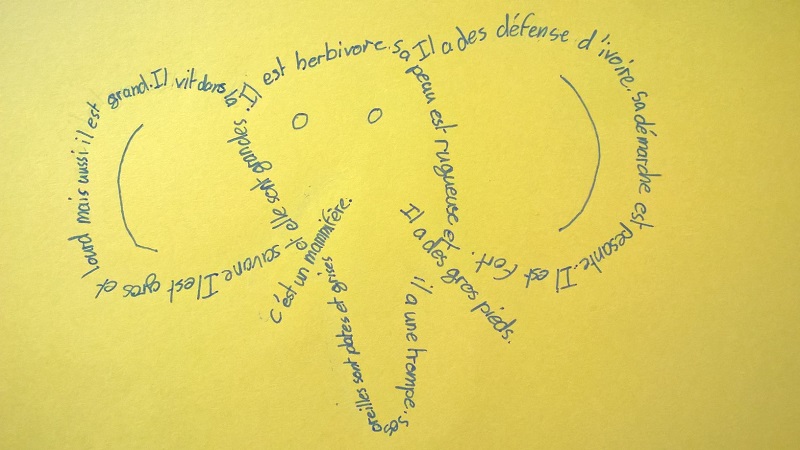 Il est gros et lourd mais aussi il est grand. Il vit dans la savane.
Il est herbivore. Sa peau est rugueuse et il a une trompe. ses oreilles sont plates et grises et elle sont grandes
Il a des défense d'ivoire. sa démarche est pesante. Il est fort.
c'ést un mammifère.
Il a des gros pieds.